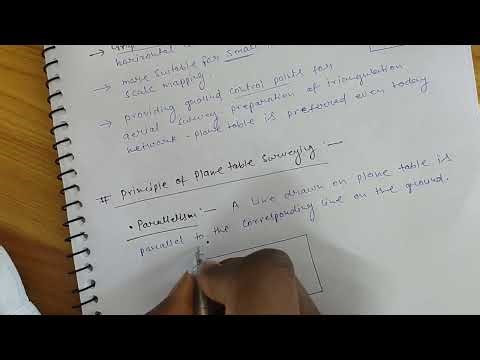 horizontal
→ more suitable for small
scale mapping.
→ providing ground control points for
aerial survey preparation of triangulation
network - plane table is preferred even today
# Principle of plane table surveying :-
• Parallelism :- A line drawn on plane table is
parallel to the corresponding line on the ground.